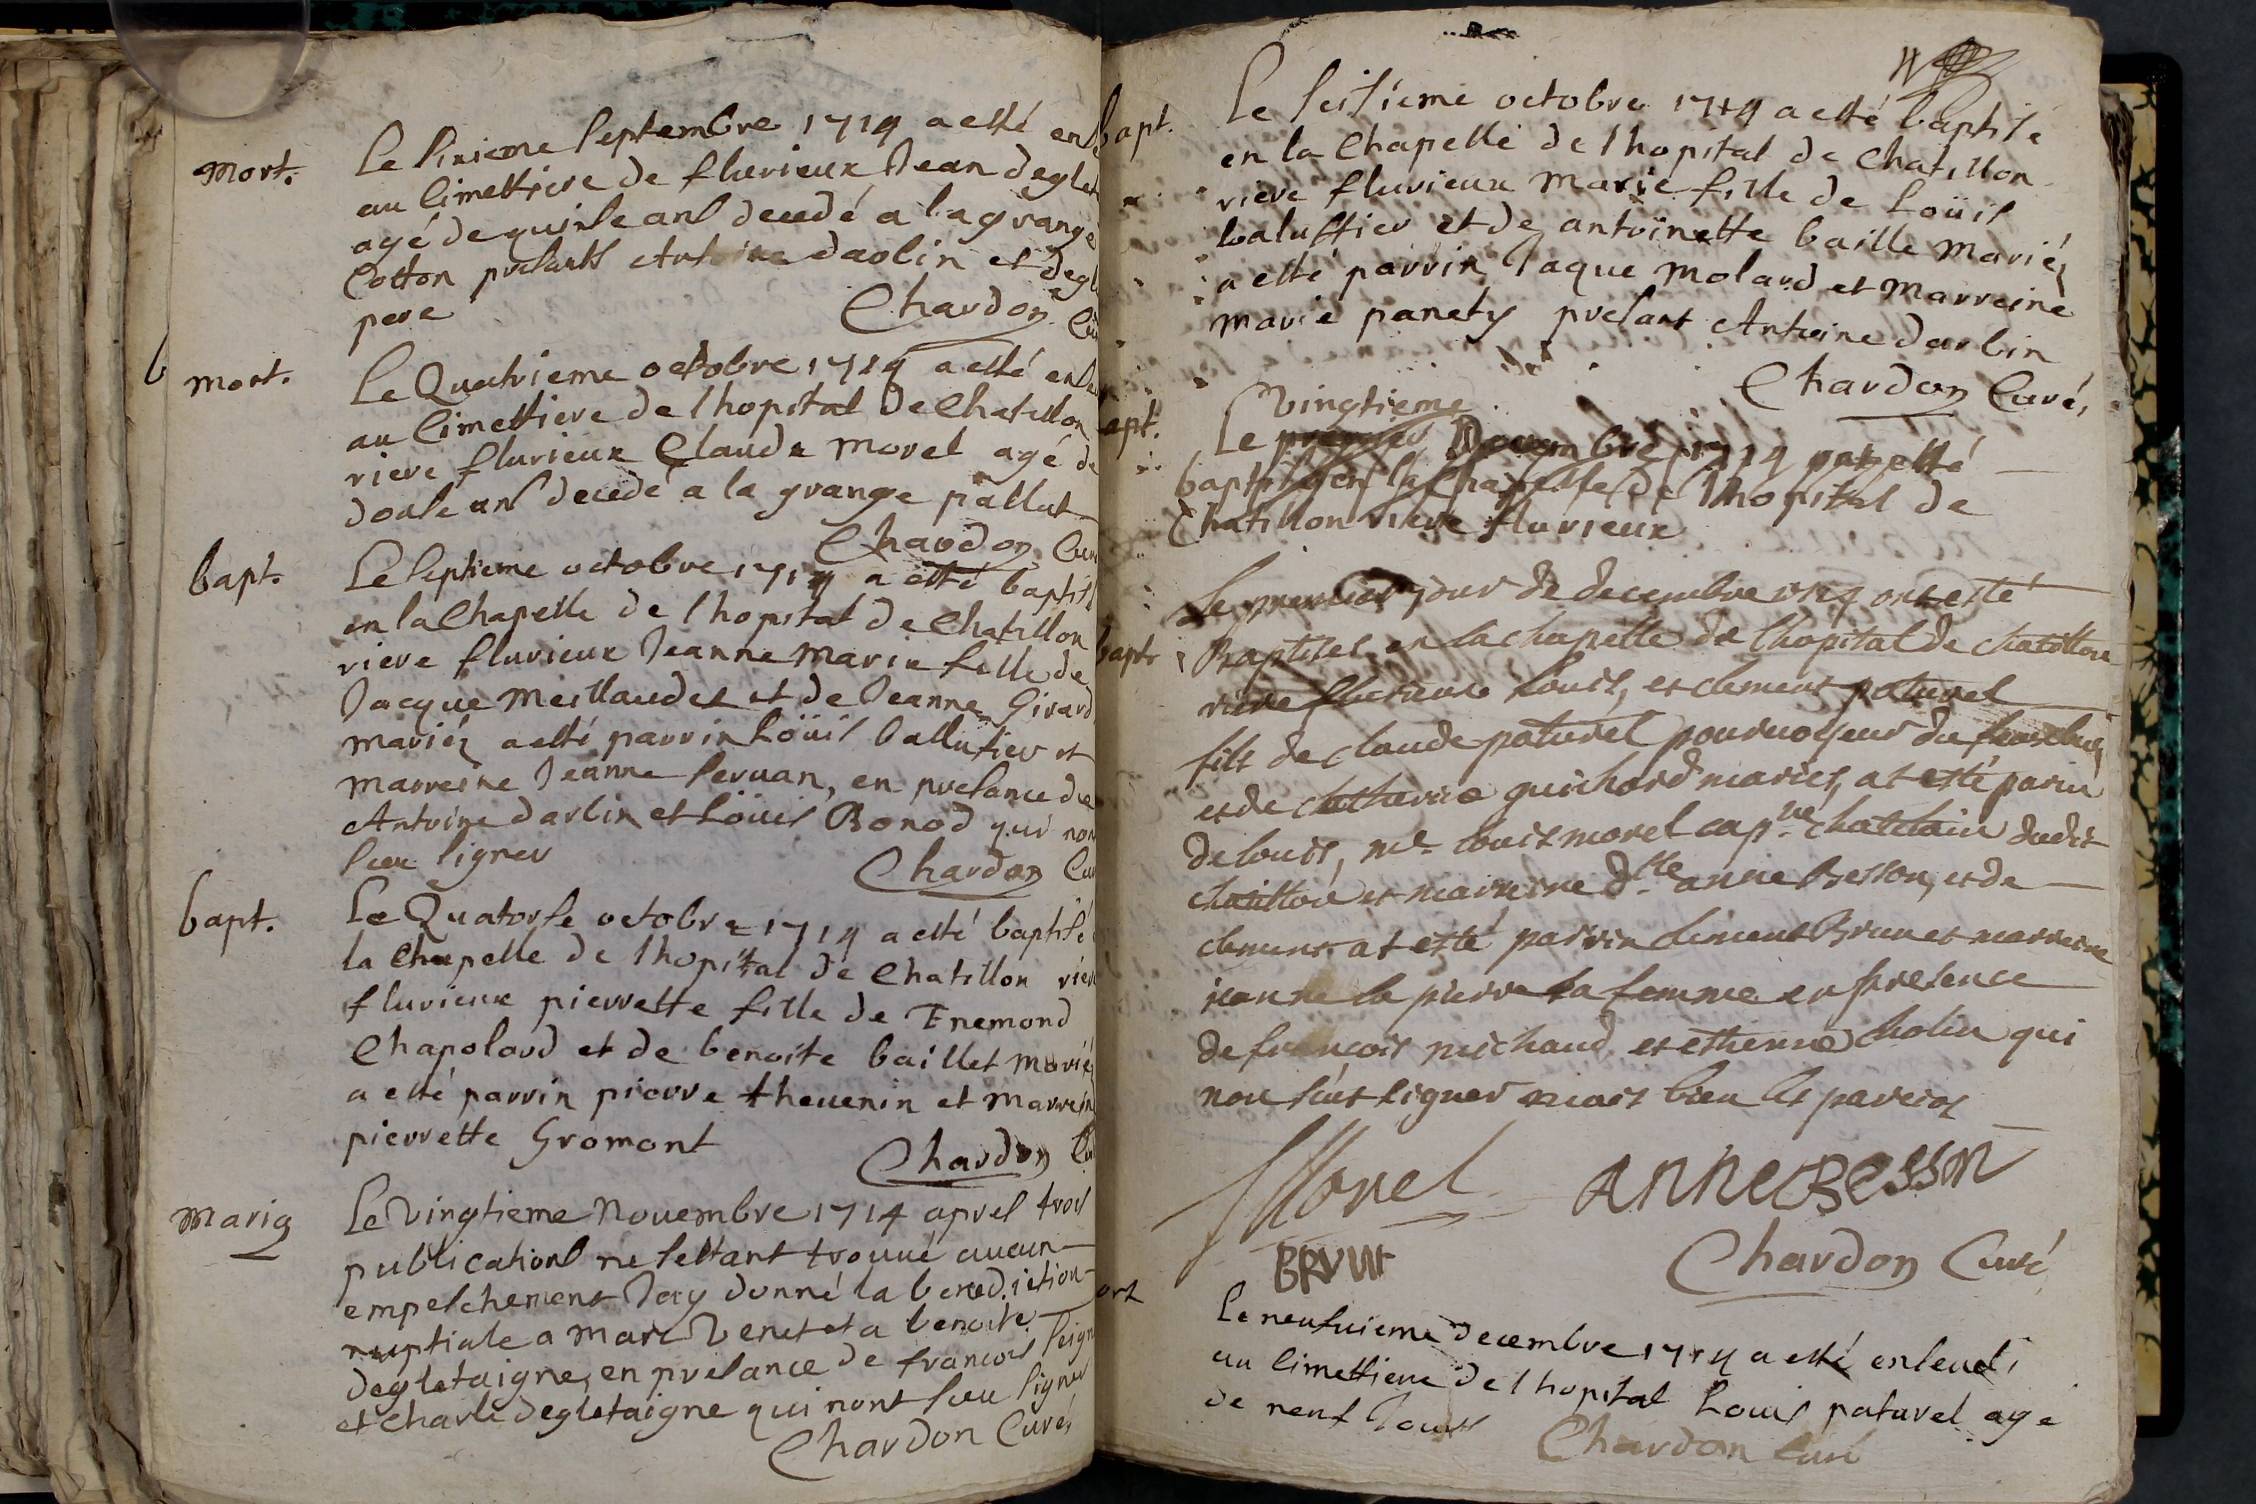 mort.
Le sixieme septembre 1714 a esté ense
au simettiere de flurieux Jean deglet
agé de quinse ans decedé a la grange
Cotton presants Antoine darlin et degl
pere
Chardon Cu
mort.
Le Quatrieme octobre 1714 a esté ense
au simettiere de l hopital de Chatillon
riere flurieux Claude morel agé de
douse ans decedé a la grange pallut
Chardon Cur
bapt.
Le septieme octobre 1714 a esté baptis
en la Chapelle de l hopital de Chatillon
riere flurieux Jeanne marie fille de
Jacque meillaudet et de Jeanne Girard
mariéz a esté parrin Loüis ballufier et
marreine Jeanne seruan, en presance de
Antoine darlin et Loüis Bonod qui non
sceu signer
Chardon Cur
bapt.
Le Quatorse octobre 1714 a esté baptisé
la Chapelle de l hopital de Chatillon rier
flurieux pierrette fille de Enemond
Chapolard et de benoite baillet mariéz
a esté parrin pierre theuenin et marrein
pierrette Gromont
Chardon Cu
mariez
Le vingtieme nouembre 1714 apres trois
publications ne sestant trouué aucun
empeschement Jay donné la benediction
nuptiale a marc Venet et a benoite
degletaigne, en presance de francois seign
et Charle degletaigne qui nont sceu signer
Chardon Curé,
bapt.
Le seisieme octobre 1714 a esté baptisé
en la Chapelle de l hopital de Chatillon
riere flurieux marie fille de Loüis
baluffier et de antoinette baille mariéz
a esté parrin Jaque molard et marreine
marie panety presant Antoine darlin
Chardon Curé,
apt.
Vingtieme
Le premier decembre 1714 esté
baptisé en la Chapelle de l hopital de
Chatillon riere flurieux
bapt.
Le premier jour de decembre 1714 ont esté
Baptises en la chapelle de lhopital de chatillon
riere flurieux Louis, et clement paturel
fils de claude paturel pouruoyeur du
et de guichard mariés, at esté parin
de Louis, mr Louis morel cap.ne chatelain dudit
chatillon et marreine d.lle anne Besson, et de
clement at esté parrin clement Brun et marreine
jeanne la pierre sa femme en presence
de francois michaud et ethienne cholin qui
non sceu signer mais bien les parrins
Morel
ANNE BESSON
BRVN
Chardon Curé
ort
Le neufuieme decembre 1714 a esté enseueli
au simettiere de l hopital Louis paturel age
de neuf Jours
Chardon Curé